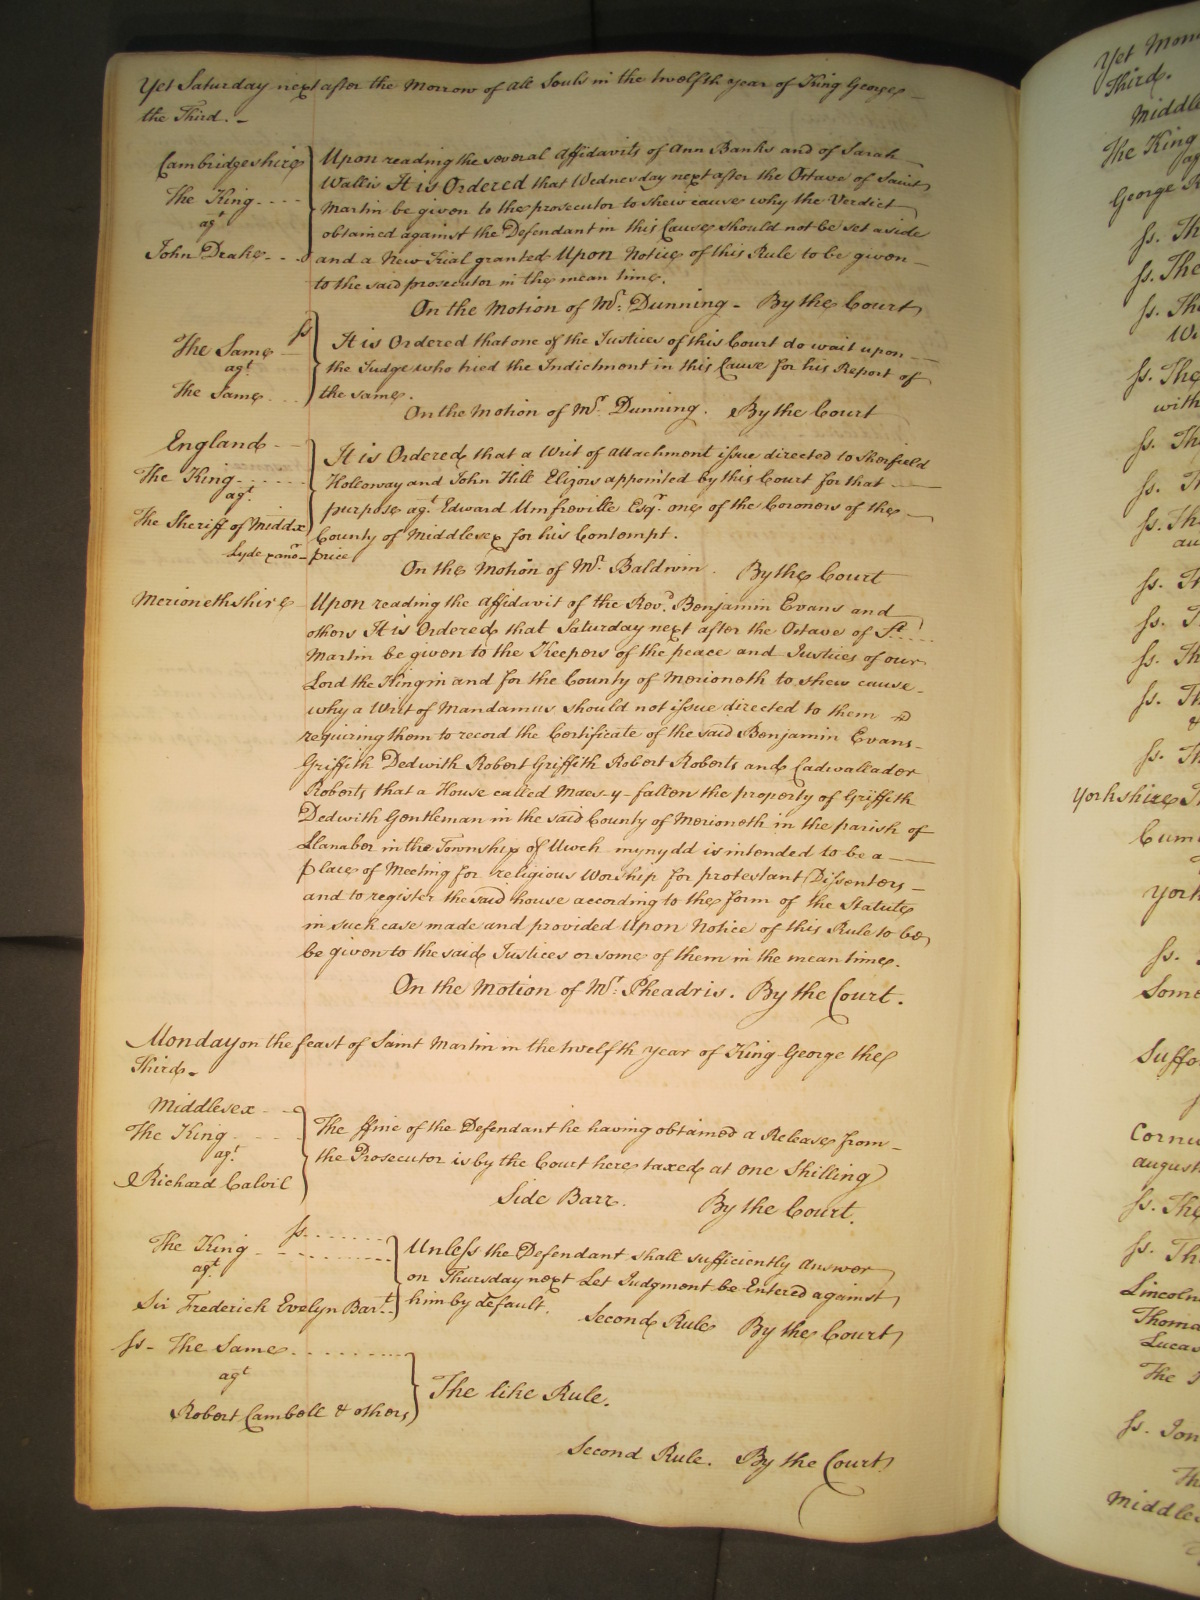 Yet Saturday next after the Morrow of All Souls in the twelfth year of King George
the Third.
Cambridgeshire
The King
agt
John Drake
Upon reading the several Affidavits of Ann Banks and of Sarah
Wallis It is Ordered that Wednesday next after the Octave of Saint
Martin be given to the prosecutor to shew cause why the Verdict
obtained against the Defendant in this Cause should not be set aside
and a New Trial granted Upon Notice of this Rule to be given
to the said prosecutor in the mean time.
On the Motion of Mr. Dunning - By the Court
ss
The Same
agt
The Same
It is Ordered that one of the Justices of this Court do wait upon
the Judge who tried the Indictment in this Cause for his Report of
the same.
On the Motion of Mr. Dunning. By the Court
England
The King
agt
The Sheriff of Middx
It is Ordered that a Writ of Attachment issue directed to
Holloway and John Hill Elizors appointed by this Court for that
purpose agt. Edward Umfreville Esqr. one of the Coroners of the
County of Middlesex for his Contempt.
Price
On the Motion of Mr. Baldwin. By the Court
Merionethshire
Upon reading the Affidavit of the Revd. Benjamin Evans and
others It is Ordered that Saturday next after the Octave of St
Martin be given to the Keepers of the peace and Justices of our
Lord the King in and for the County of Merioneth to shew cause
why a Writ of Mandamus should not issue directed to them
requiring them to record the Certificate of the said Benjamin Evans
Griffith Dedwith Robert Griffith Robert Roberts and Cadwallader
Roberts that a House called Maes-y-fallen the property of Griffith
Dedwith Gentleman in the said County of Merioneth in the parish of
Llanaber in the Township of Uwch mynydd is intended to be a
place of Meeting for religious Worship for protestant Dissenters
and to register the said house according to the form of the Statute
in such case made and provided Upon Notice of this Rule to be
be given to the said Justices or some of them in the mean time.
On the Motion of Mr. Pheadris. By the Court.
Monday on the feast of Saint Martin in the twelfth year of King George the
Third.
Middlesex
The King
agt
Richard Calvil
The ffine of the Defendant he having obtained a Release from
the Prosecutor is by the Court here taxed at one Shilling
Side Barr. By the Court.
ss
The King
agt
Sir Frederick Evelyn Bart
Unless the Defendant shall sufficiently Answer
on Thursday next Let Judgment be Entered against
him by default.
Second Rule By the Court
ss - The Same
agt
Robert Cambell & others
The like Rule.
Second Rule. By the Court